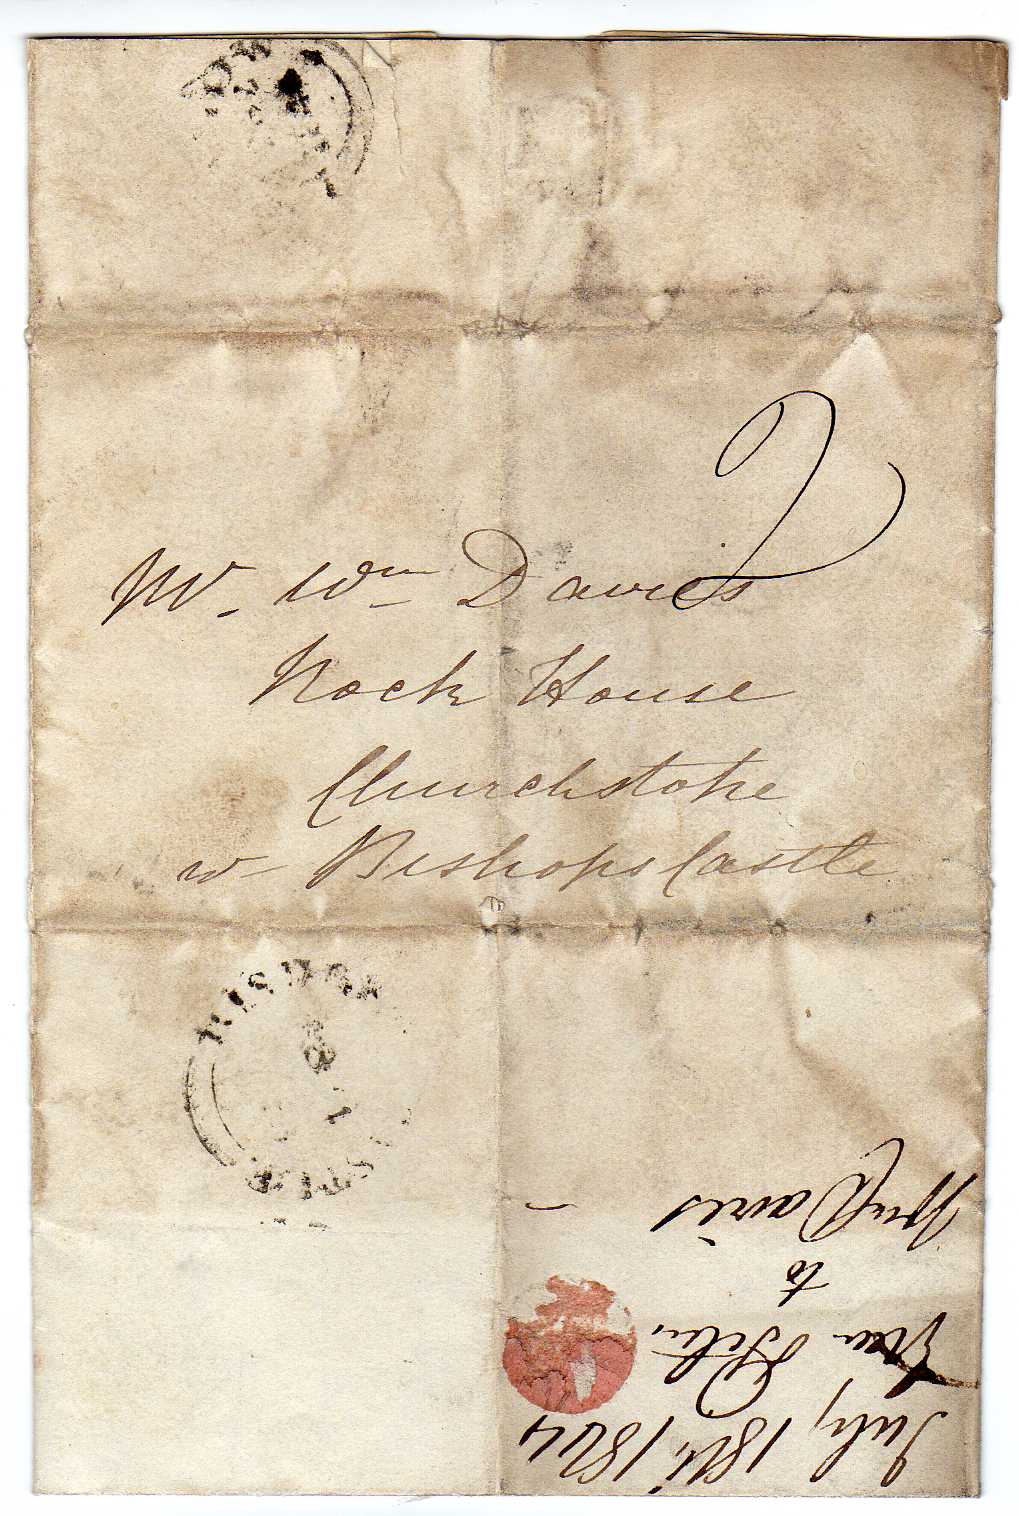 2
Mr. Wm Davies
Rock House
Churchstoke
Bishops Castle
BISHOPS
July 18th, 1844
to
Wm Davies